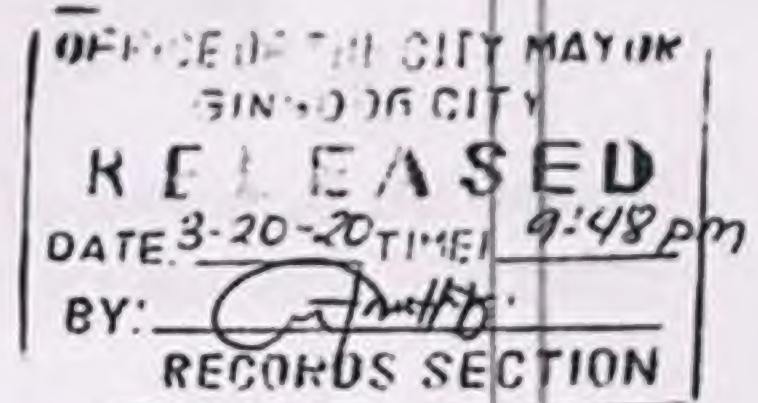 OFFICE OF THE CITY MAYOR
GINGOOG CITY
RELEASED
DATE: 3-20-20 TIME: 9:48 pm
BY:
RECORDS SECTION